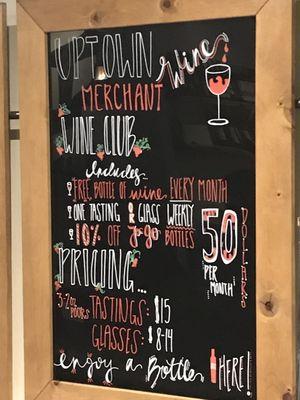 UPTOWN Wine
MERCHANT
WINE CLUB
Includes
FREE BOTTLE OF wine EVERY MONTH
ONE TASTING & GLASS WEEKLY
10% OFF to-go BOTTLES
50 DOLLARS
PER
MONTH
PRICING...
3-2oz POURS TASTINGS: $15
GLASSES: $8-14
enjoy a Bottle HERE!